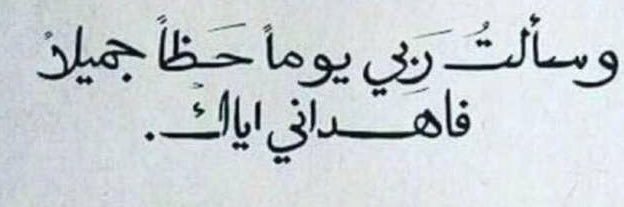 وسألتُ رَبي يوماً حَظاً جميلاً
فاهداني اياك.